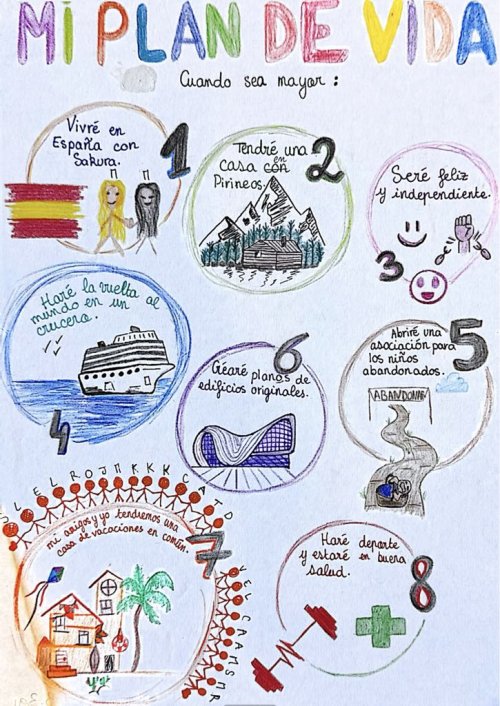 MI PLAN DE VIDA
Cuando sea mayor :
1
Viviré en
España con
Sakura.
2
Tendré una
casa con
en
Pirineos.
Seré feliz
y independiente.
3
Haré la vuelta al
mundo en un
crucero.
4
5
Abriré una
asociación para
los niños
abandonados.
ABANDONAR
6
Crearé planos de
edificios originales.
7
mi amigos y yo tendremos una
casa de vacaciones en común.
8
Haré deporte
y estaré en buena
salud.